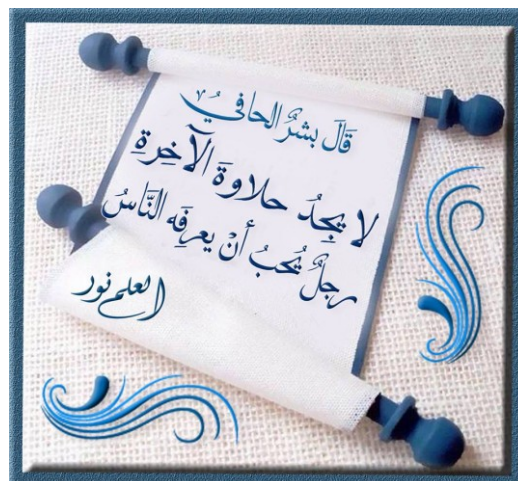 قَالَ بشرٌ الحافيُّ
لا يَجِدُ حلاوةَ الآخِرةِ
رجلٌ يُحبُ أنْ يعرِفَه النَّاسُ
العلم نور